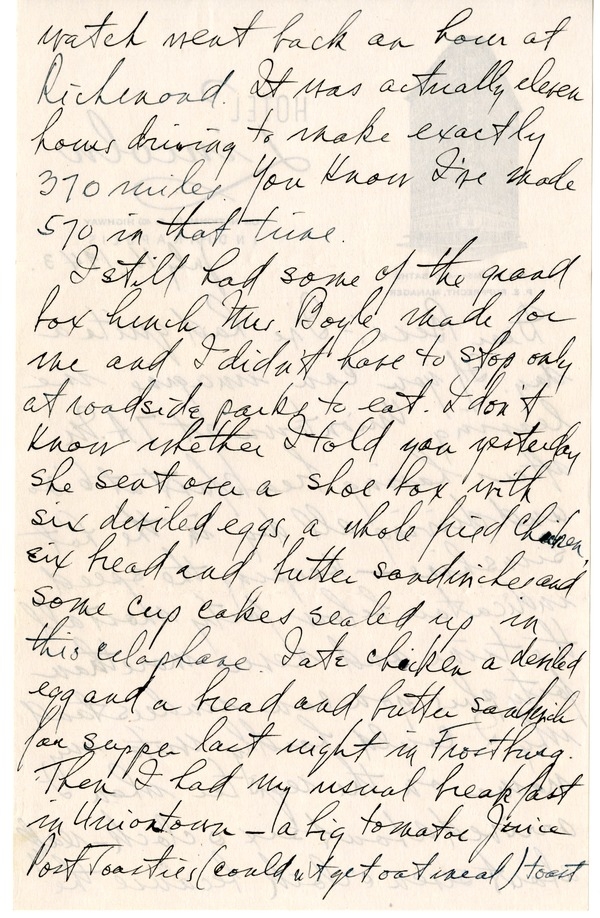 watch went back an hour at
Richmond. It was actually eleven
hours driving to make exactly
370 miles. You know I've made
570 in that time.
I still had some of the grand
box lunch Mrs. Boyle made for
me and I didn't have to stop only
at roadside parks to eat. I don't
know whether I told you yesterday
she sent over a shoe box with
six deviled eggs, a whole fried chicken,
six bread and butter sandwiches and
some cup cakes sealed up in
this celaphane. I ate chicken a deviled
egg and a bread and butter sandwich
for supper last night in Frostburg.
Then I had my usual breakfast
in Uniontown – a big tomatoe juice
Post Toasties (couldn't get oatmeal) toast